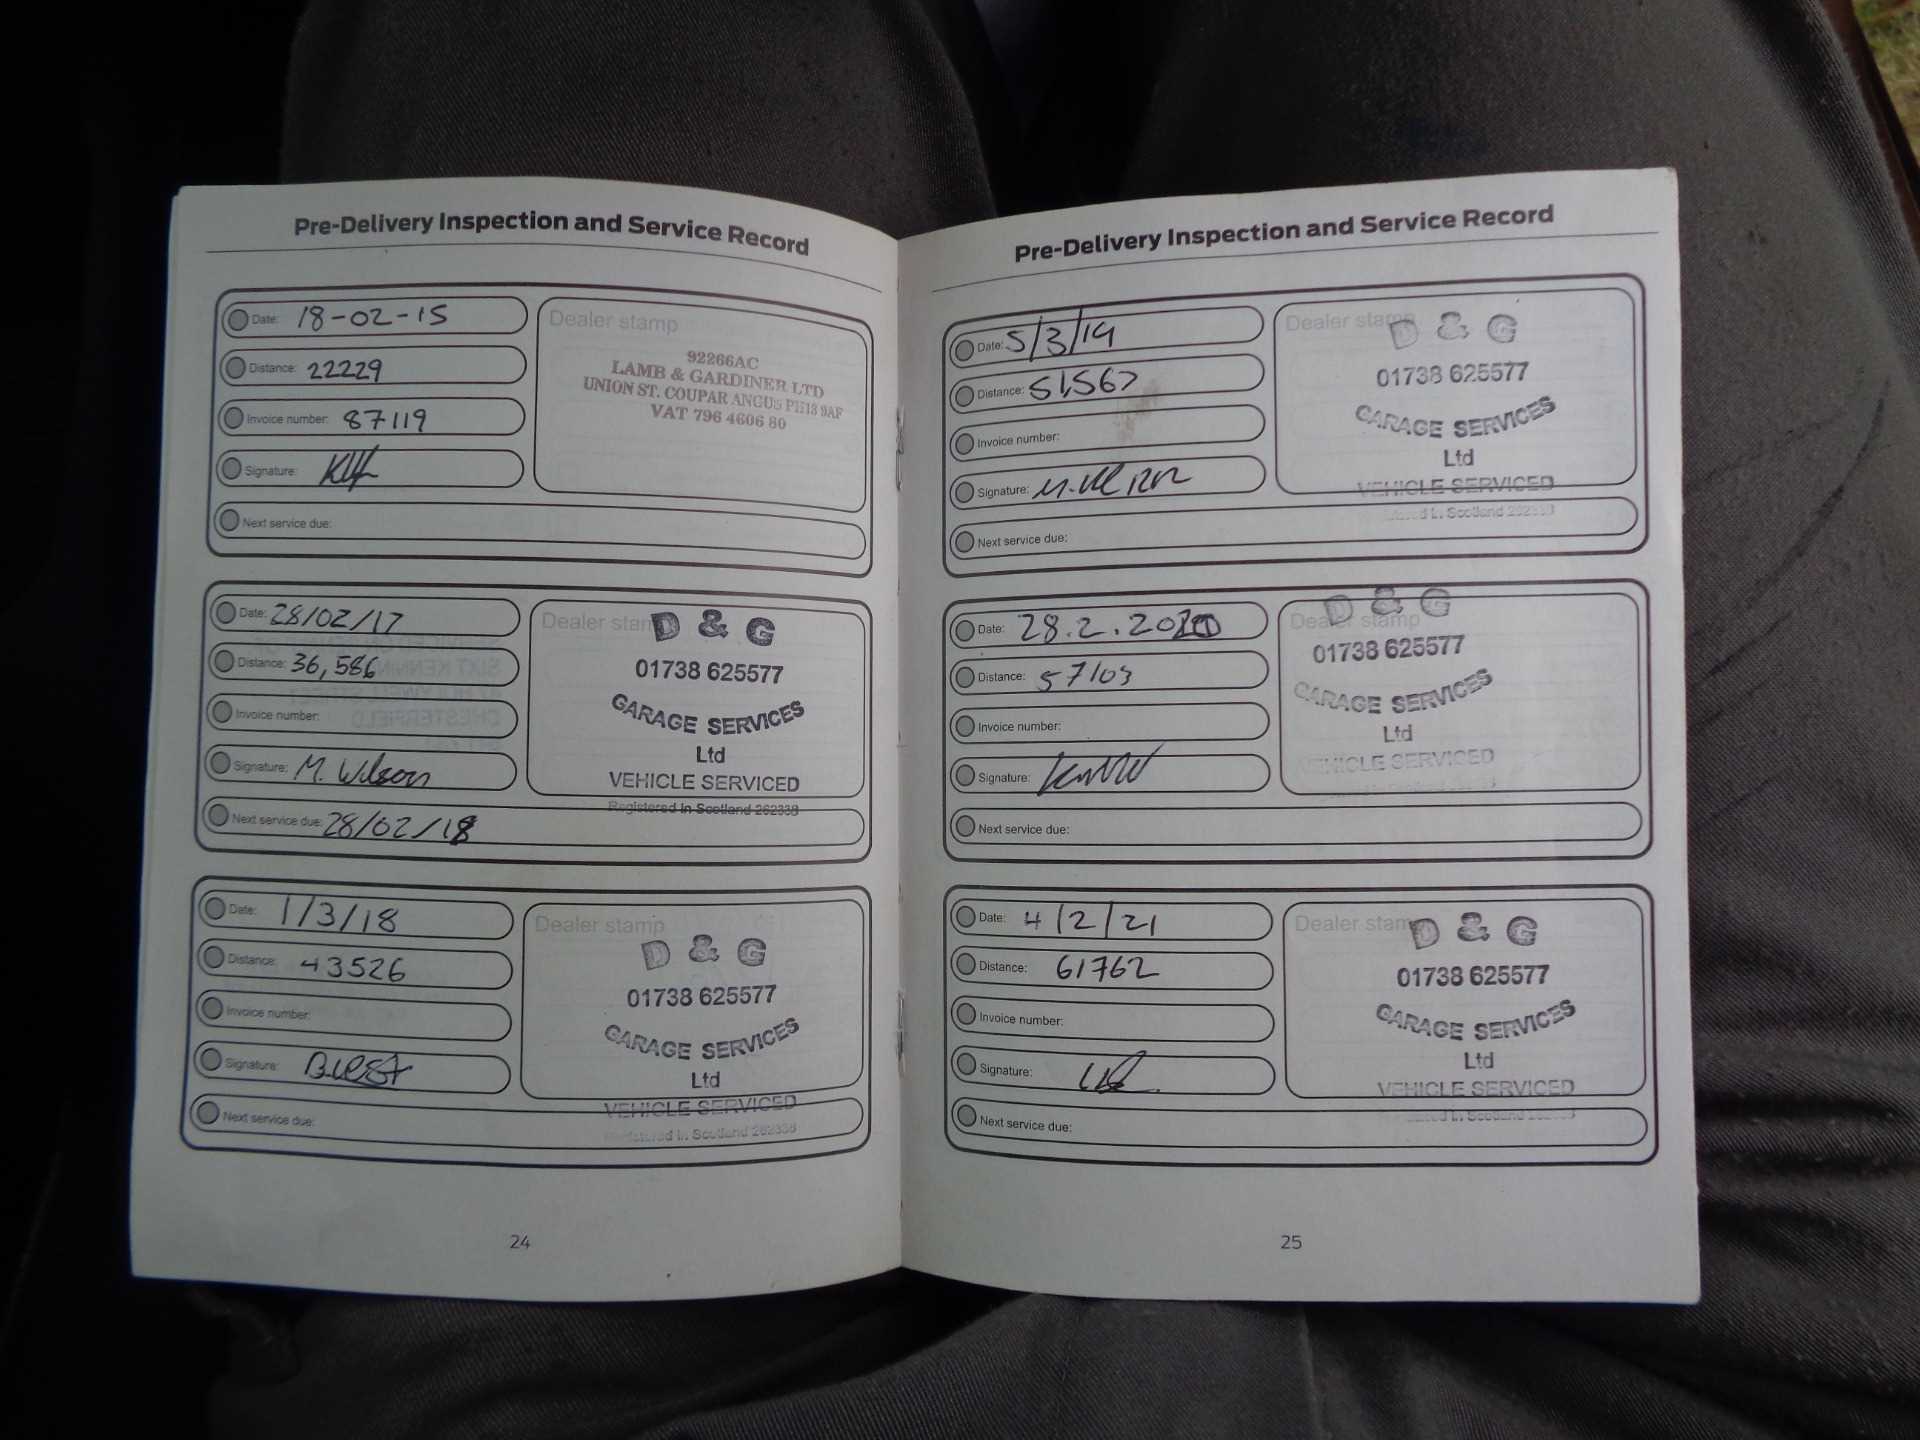 Pre-Delivery Inspection and Service Record
Date: 18-02-15
Distance: 22229
Invoice number: 87119
Signature:
Next service due:
Dealer stamp
92266AC
LAMB & GARDINER LTD
UNION ST. COUPAR ANGUS PH13 9AF
VAT 796 4606 80
Date: 28/02/17
Distance: 36,586
Invoice number:
Signature: M. Wilson
Next service due: 28/02/18
Dealer stamp
D & G
01738 625577
GARAGE SERVICES
Ltd
VEHICLE SERVICED
Registered in Scotland 262338
Date: 1/3/18
Distance: 43526
Invoice number:
Signature: B. West
Next service due:
Dealer stamp
D & G
01738 625577
GARAGE SERVICES
Ltd
VEHICLE SERVICED
Registered in Scotland 262338
24
Pre-Delivery Inspection and Service Record
Date: 5/3/19
Distance: 51,567
Invoice number:
Signature:
Next service due:
Dealer stamp
D & G
01738 625577
GARAGE SERVICES
Ltd
VEHICLE SERVICED
in Scotland 262338
Date: 28.2.2020
Distance: 57103
Invoice number:
Signature:
Next service due:
Dealer stamp
D & G
01738 625577
GARAGE SERVICES
Ltd
VEHICLE SERVICED
Date: 4/2/21
Distance: 61762
Invoice number:
Signature:
Next service due:
Dealer stamp
D & G
01738 625577
GARAGE SERVICES
Ltd
VEHICLE SERVICED
in Scotland
25